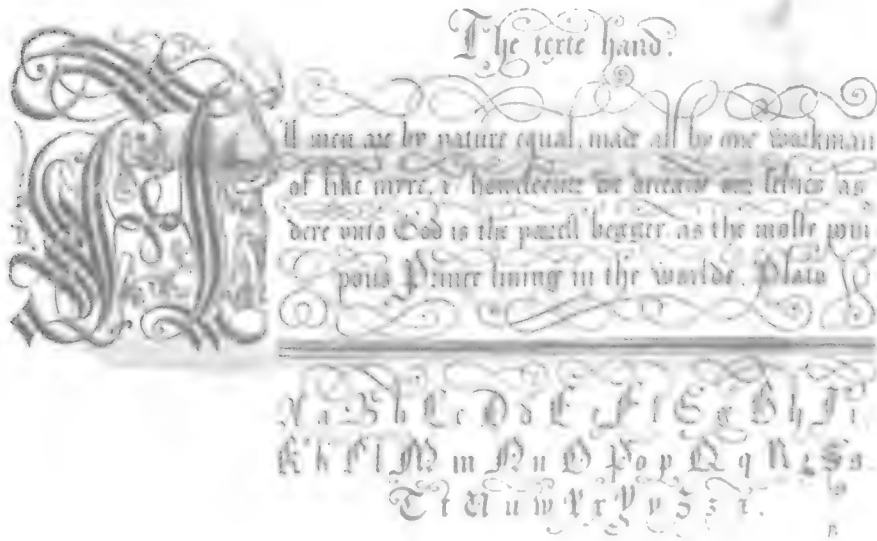 The texte hand.
All men are by nature equal, made all by one workman
of like myre, & howsoever we deceave our selves as
dere unto God is the poorest begger, as the moste pom
pous Prince living in the worlde. Plato
A a B b C c D d E e F f G g H h I i
K k L l M m N n O P o p Q q R r S s
T t U u w X x Y y Z z &.